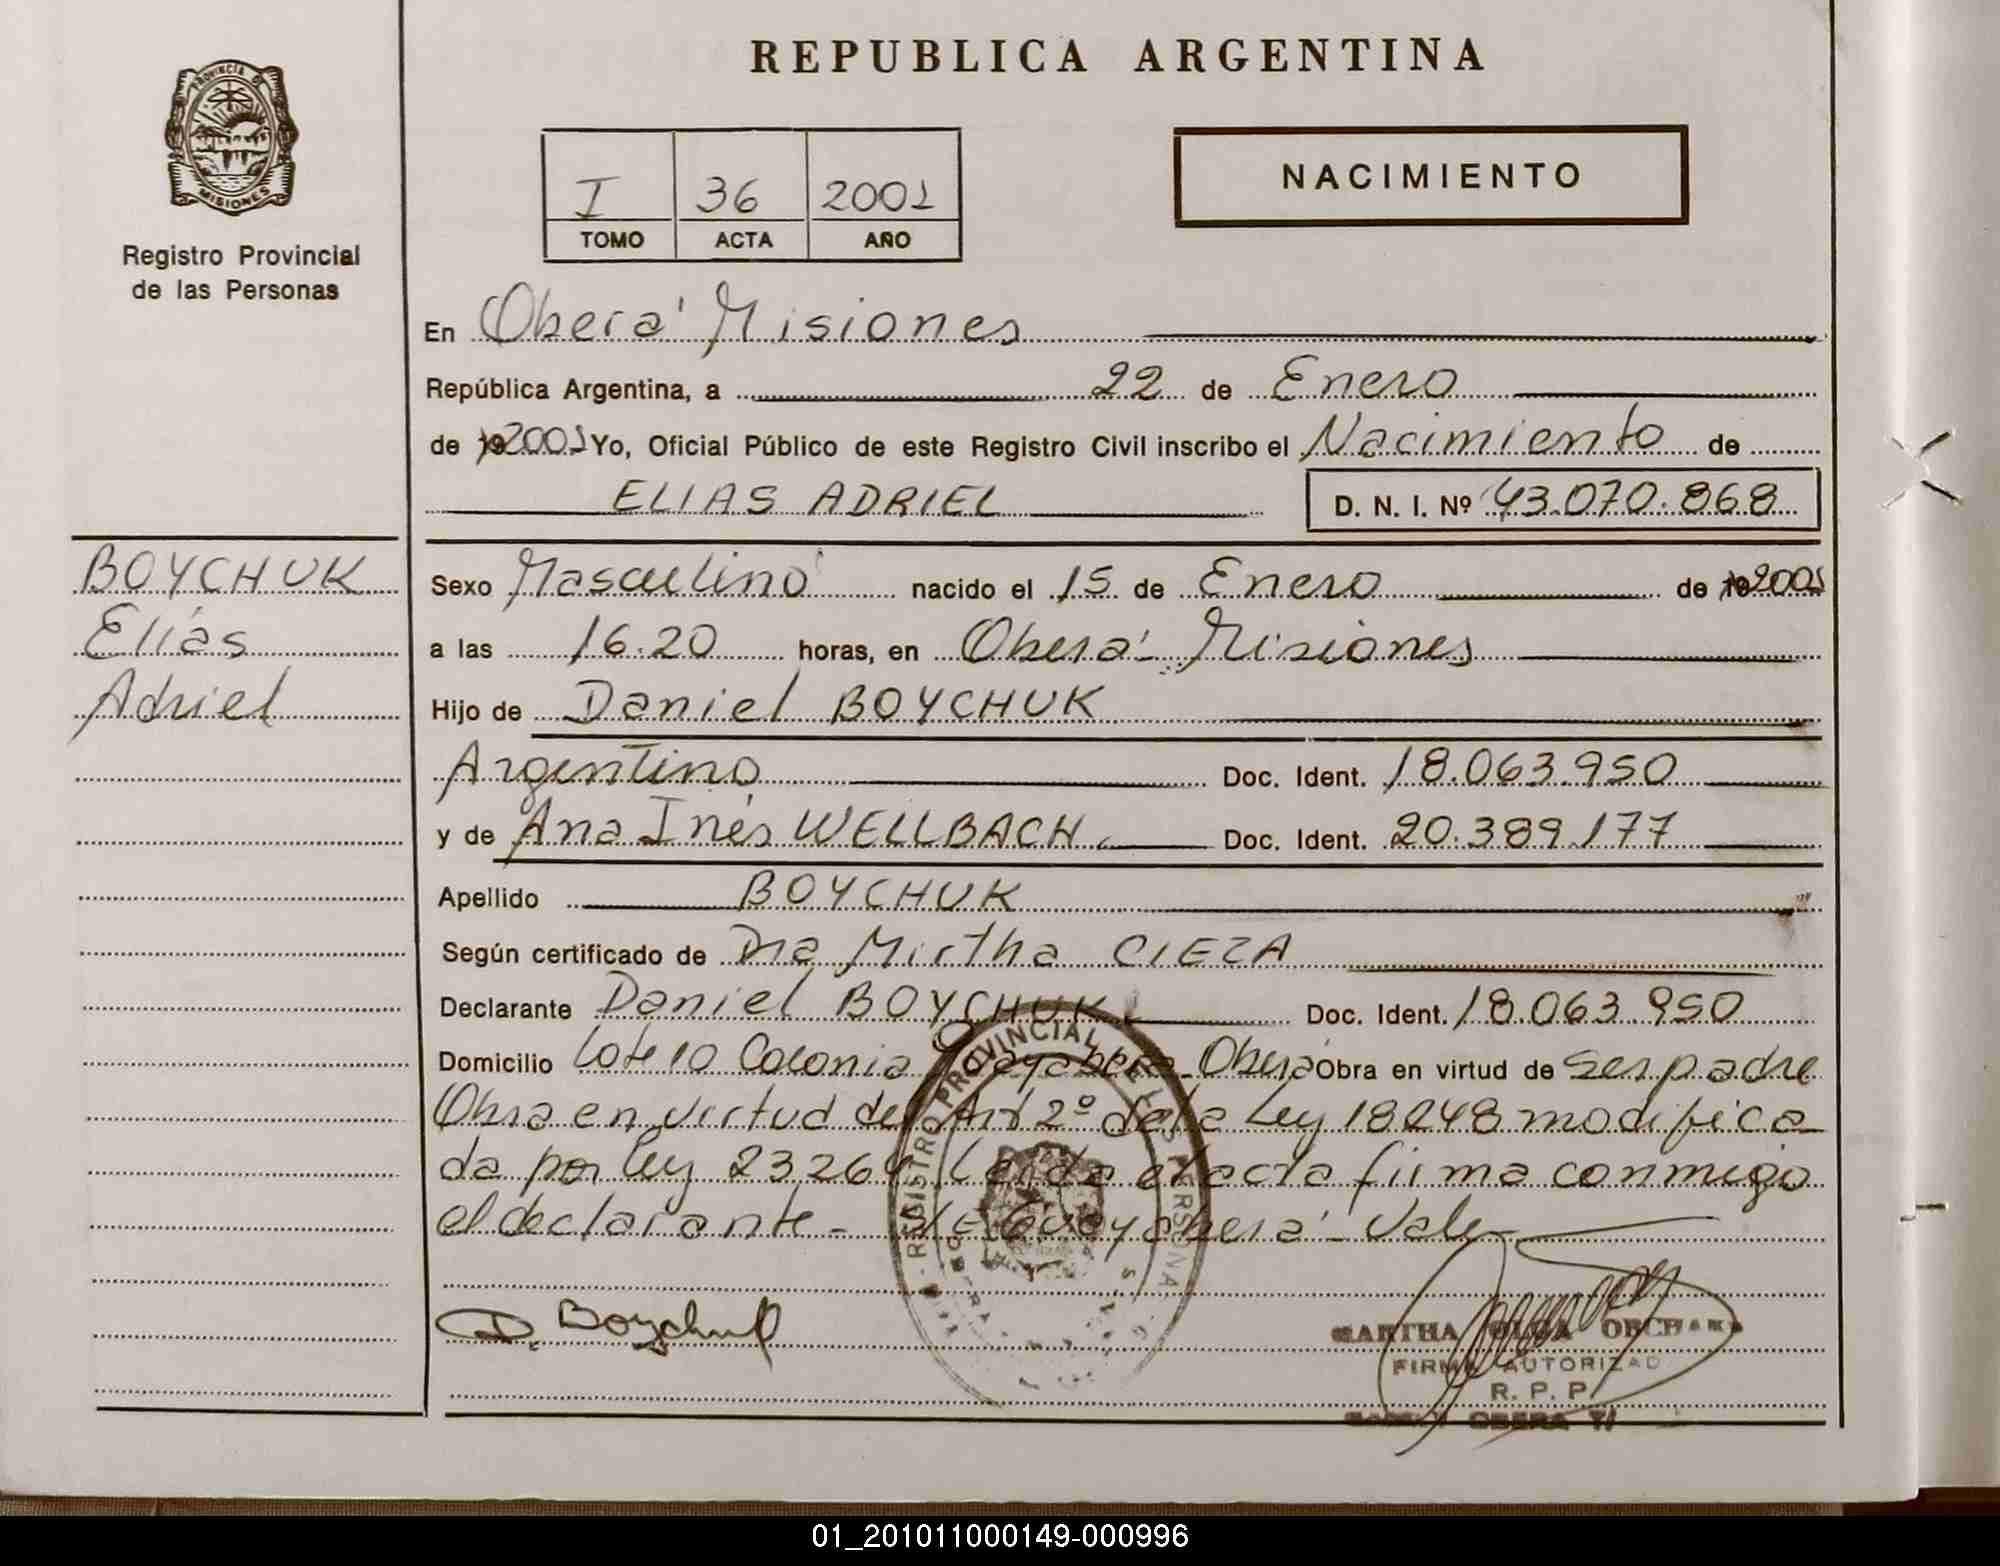 REPUBLICA ARGENTINA
PROVINCIA D
MISIONES
Registro Provincial
de las Personas
I 36 2001
TOMO ACTA AÑO
NACIMIENTO
En Oberá Misiones
República Argentina, a 22 de Enero
de 19 2001 Yo, Oficial Público de este Registro Civil inscribo el Nacimiento de
ELIAS ADRIEL D. N. I. Nº 43.070.868
BOYCHUK
Elías
Adriel
Sexo Masculino nacido el 15 de Enero de 19 2001
a las 16.20 horas, en Oberá Misiones
Hijo de Daniel BOYCHUK
Argentino Doc. Ident. 18.063.950
y de Ana Inés WELLBACH Doc. Ident. 20.389.177
Apellido BOYCHUK
Según certificado de Dra Mirtha CIEZA
Declarante Daniel BOYCHUK Doc. Ident. 18.063.950
Domicilio Lote 10 Colonia Oberá Obra en virtud de ser padre
Obra en virtud del Art 2º de la Ley 18248 modifica
da por ley 23264 Leida el acta firma conmigo
el declarante - Oberá - Vale
REGISTRO PROVINCIAL DE LAS PERSONAS
D. Boychuk
MARTHA OLGA
FIRMA AUTORIZAD
R. P. P.
OBERA
01_201011000149-000996